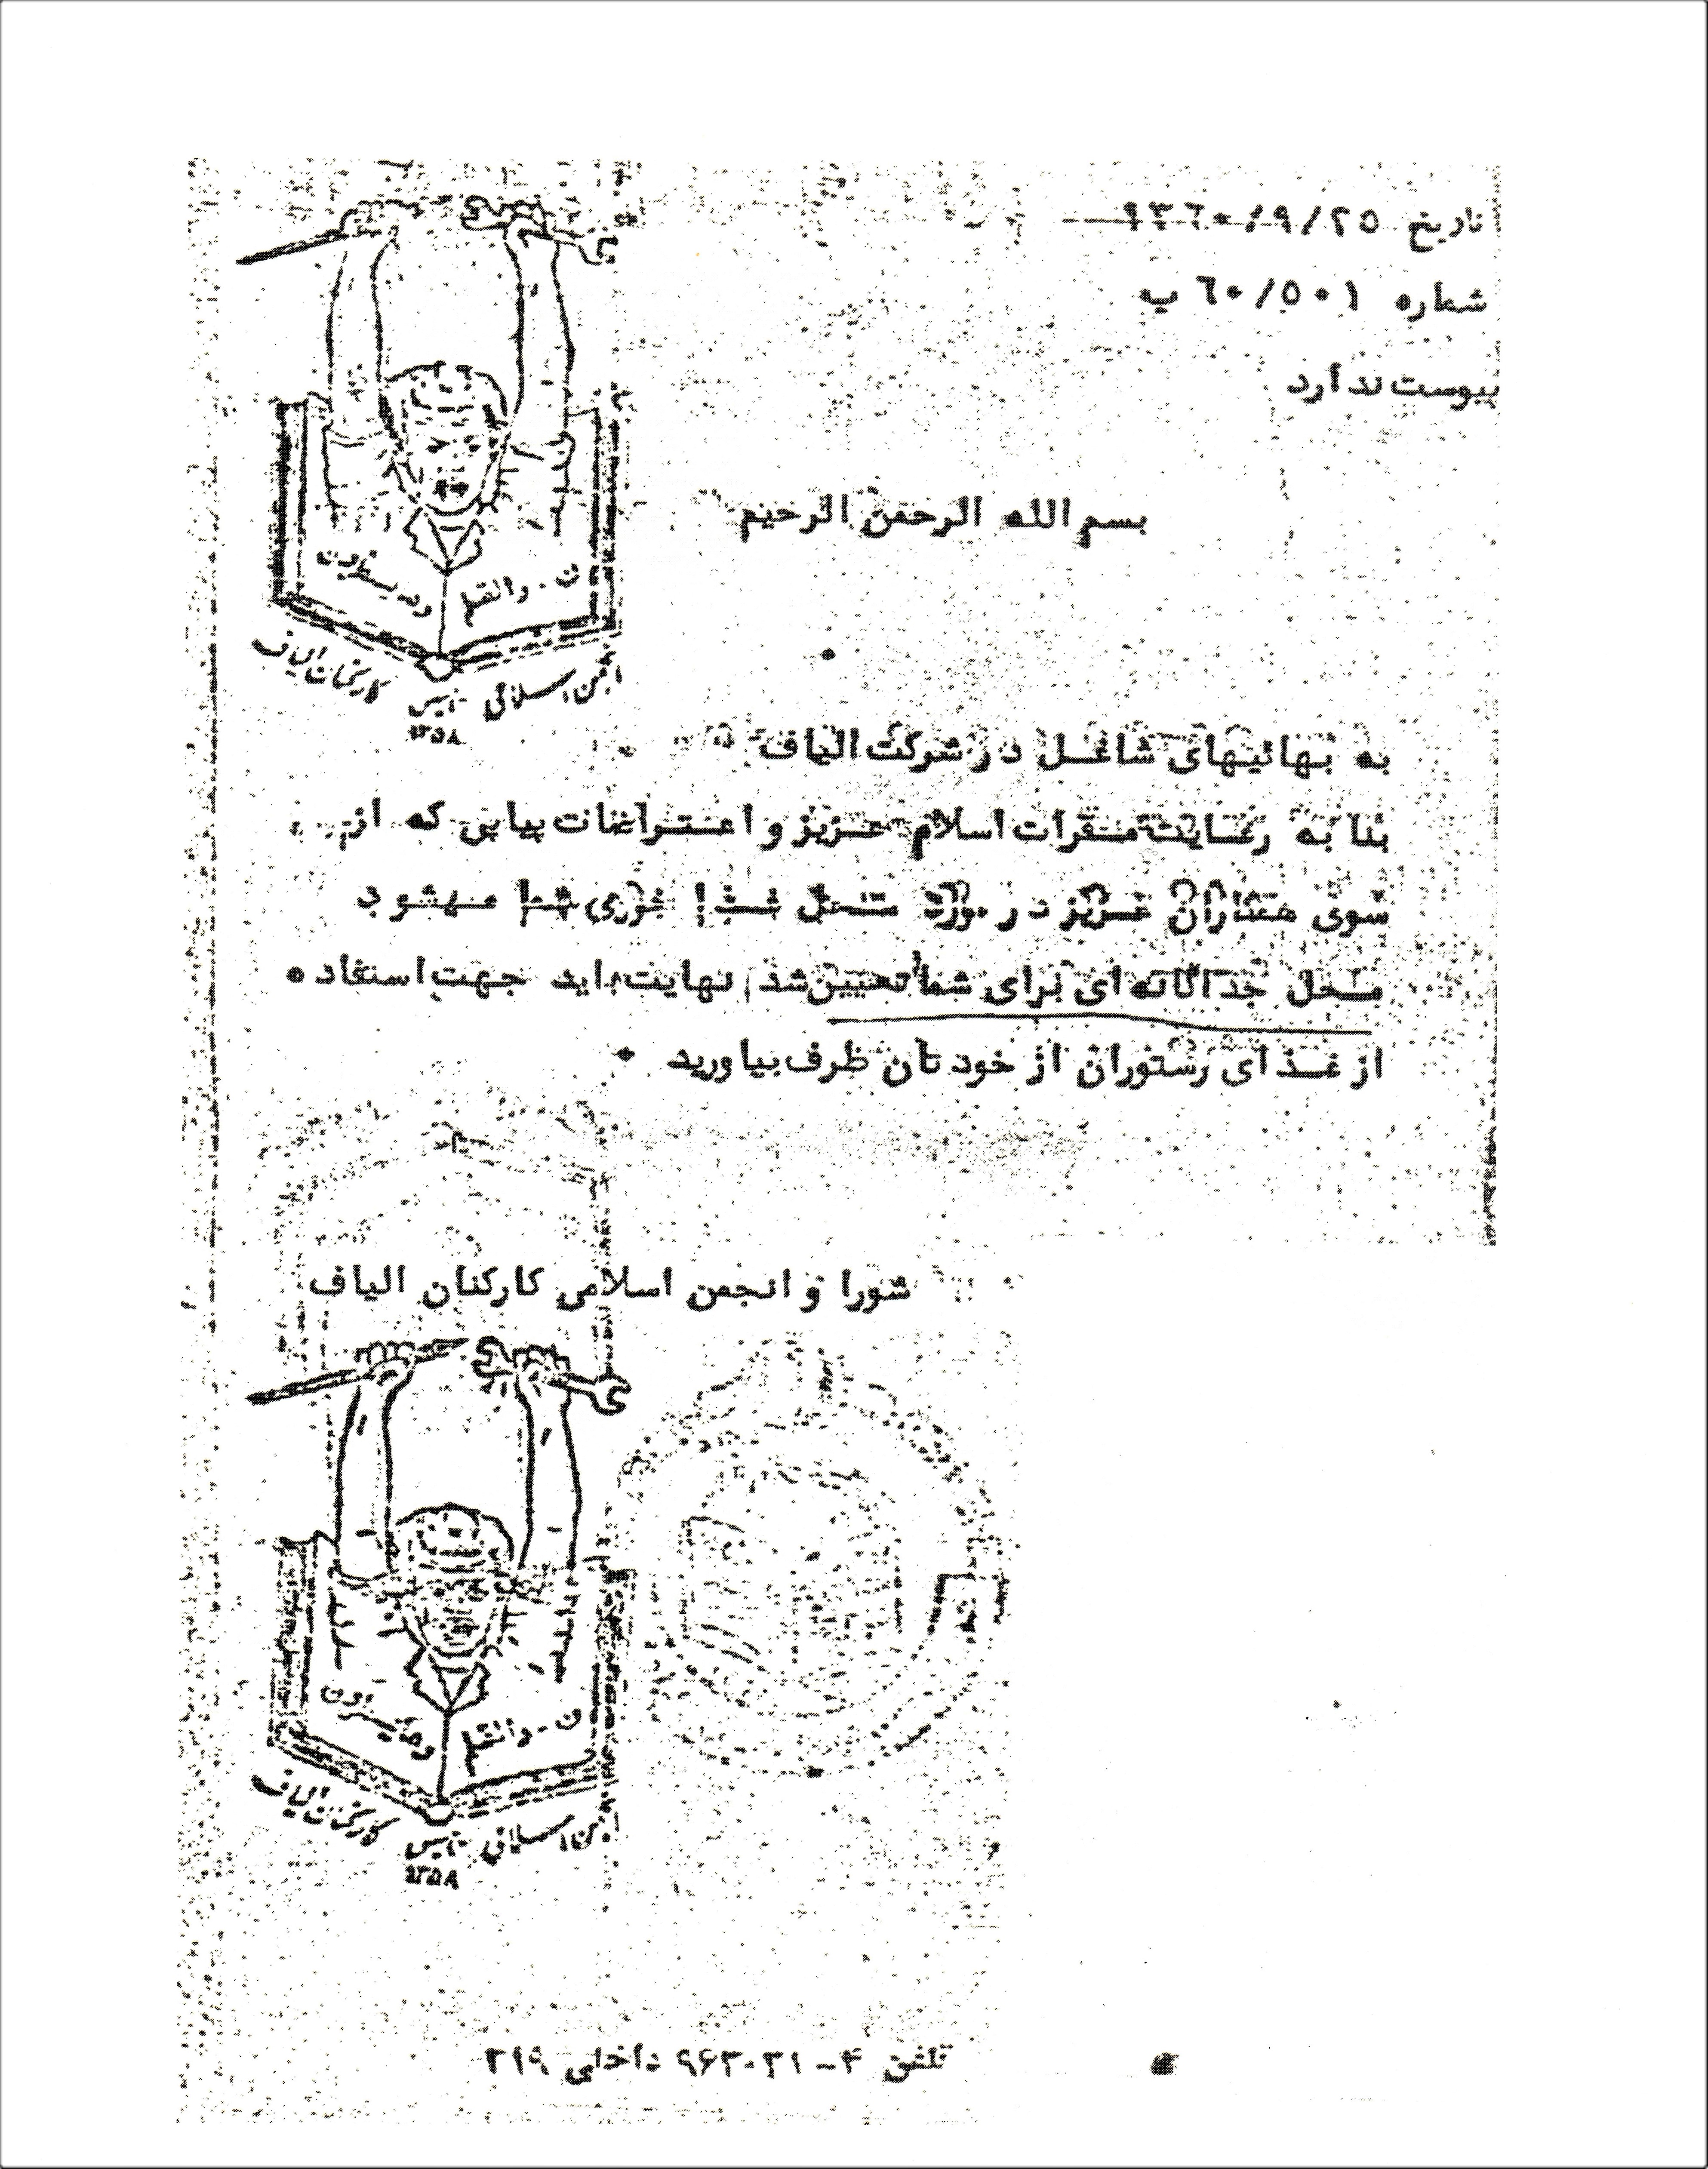 تاریخ ٢٥/٩/١٣٦٠
شماره ٦٠/٥٠١ ب
پیوست ندارد
بسم الله الرحمن الرحیم
ن - والقلم وما یسطرون
انجمن اسلامی کارکنان الیاف
١٣٥٨
به بهائیهای شاغل در شرکت الیاف
بنا به رعایت مقررات اسلام عزیز و اعتراضات پیاپی که از
سوی همکاران عزیز در مورد محل غذا خوری شما میشود
محل جداگانه ای برای شما تعیین شد نهایت باید جهت استفاده
از غذای رستوران از خودتان ظرف بیاورید .
شورا و انجمن اسلامی کارکنان الیاف
ن - والقلم وما یسطرون
انجمن اسلامی کارکنان الیاف
١٣٥٨
تلفن ۴-۹۶۳۰۳۱ داخلی ۳۱۹